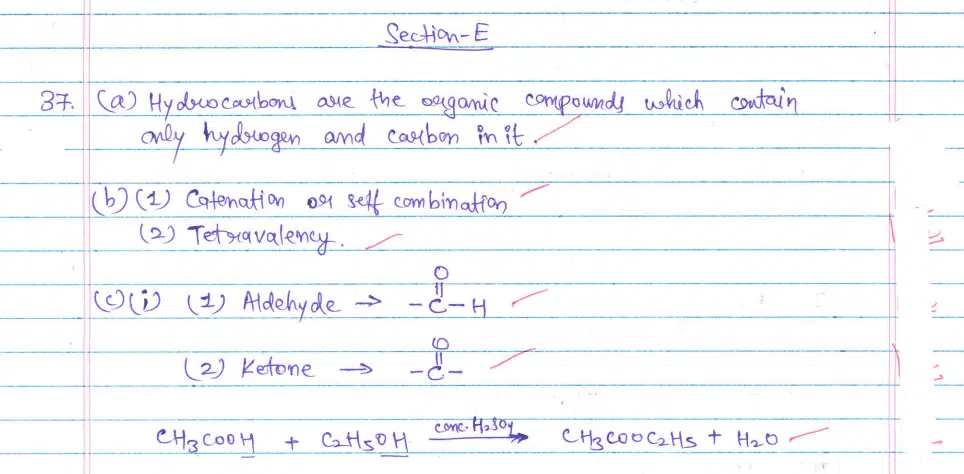 Section-E
37. (a) Hydrocarbons are the organic compounds which contain
only hydrogen and carbon in it.
(b) (1) Catenation or self combination
(2) Tetravalency.
(c) (i) (1) Aldehyde → -C-H
O
||
(2) Ketone → -C-
O
||
CH3COOH + C2H5OH conc. H2SO4 → CH3COOC2H5 + H2O